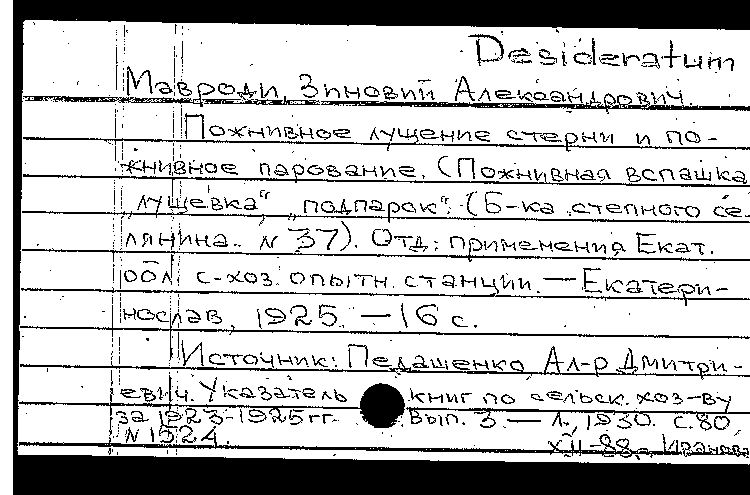 Desideratum
Мавроди, Зиновий Александрович.
Пожнивное лущение стерни и по-
жнивное парование. (Пожнивная вспашка
„лущевка“, „подпарок“. (Б-ка степного се-
лянина. N 37). Отд. применения Екат.
обл. с-хоз. опытн. станции. — Екатери-
нослав, 1925. — 16 с.
Источник: Педашенко, Ал-р Дмитри-
евич. Указатель книг по сельск. хоз-ву
за 1923-1925 гг. Вып. 3. — Л., 1930. С. 80,
N 1524.
XII-88. Иванова